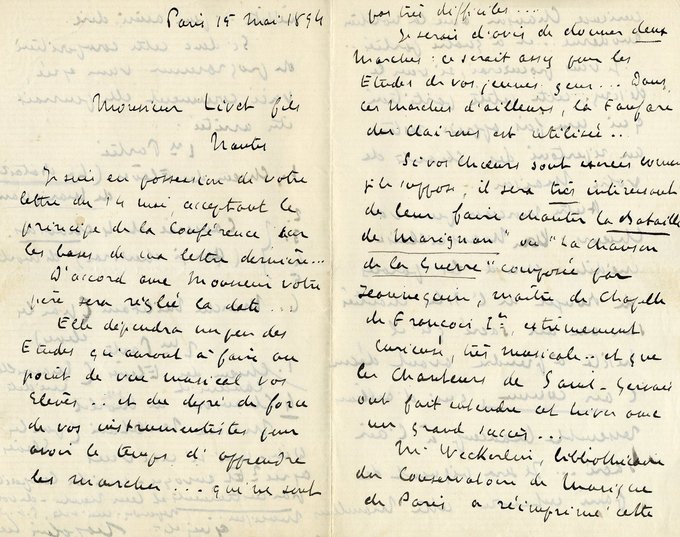 Paris 15 mai 1894
Monsieur Livet fils
Nantes
Je suis en possession de votre
lettre du 14 mai acceptant le
principe de la Conférence sur
les bases de ma lettre dernière...
D'accord avec Monsieur votre
père sera réglée la date...
Elle dépendra un peu des
Etudes qu'auront à faire au
point de vue musical vos
Elèves.. et du degré de force
de vos instrumentistes pour
avoir le temps d'apprendre
les marches.... qui ne sont
pas très difficiles...
Je serais d'avis de donner deux
Marches: ce serait assez pour les
Etudes de vos jeunes gens... Dans
ces Marches d'ailleurs, la Fanfare
des Clairons est utilisée..
Si vos Chœurs sont exercés comme
je le suppose, il sera très intéressant
de leur faire chanter la Bataille
de Marignan" ou "La Chanson
de la Guerre" composée par
Jeannequin, maître de Chapelle
de François Ier, extrêmement
curieuse, très musicale.. et que
les Chanteurs de Saint-Gervais
ont fait entendre cet hiver avec
un grand succès...
Mr Weckerlin, bibliothécaire
du Conservatoire de Musique
de Paris a réimprimé cette